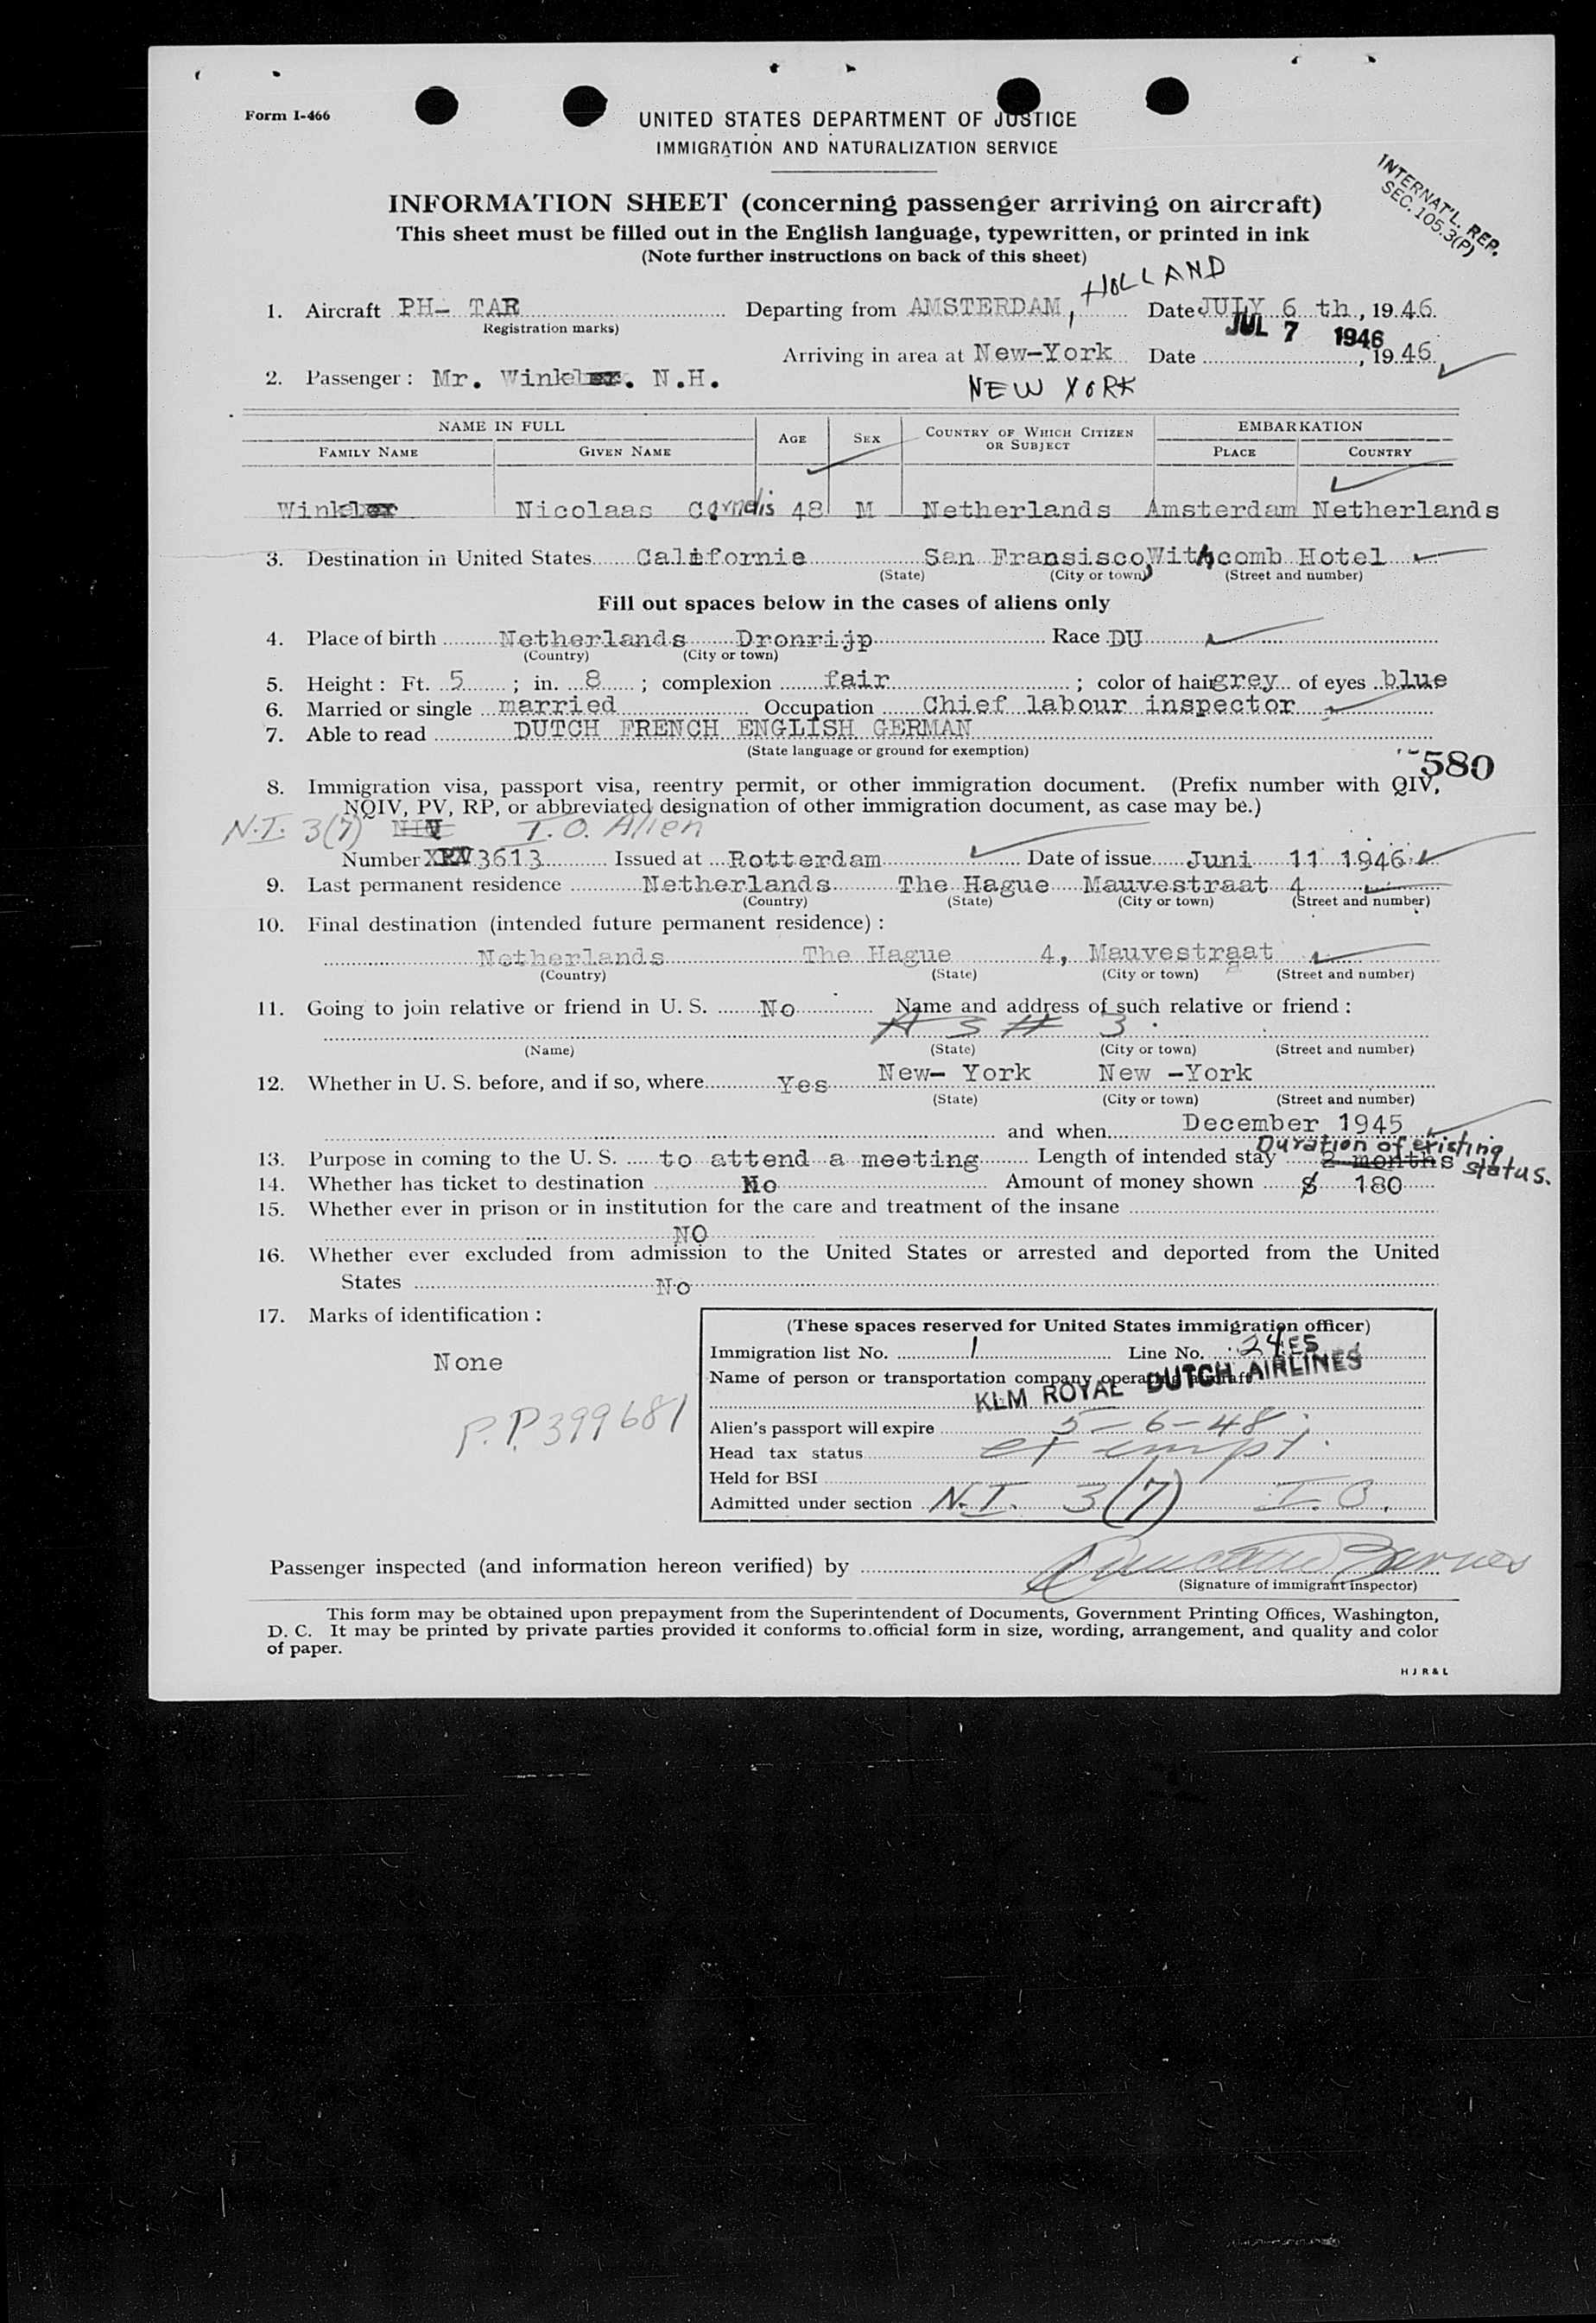 Form I-466
UNITED STATES DEPARTMENT OF JUSTICE
IMMIGRATION AND NATURALIZATION SERVICE
INTERNAT'L. REP.
SEC. 105.3(P)
INFORMATION SHEET (concerning passenger arriving on aircraft)
This sheet must be filled out in the English language, typewritten, or printed in ink
(Note further instructions on back of this sheet)
1. Aircraft PH- TAR Departing from AMSTERDAM, HOLLAND Date JULY 6 th, 1946
(Registration marks)
JUL 7 1946
Arriving in area at New-York Date , 1946
2. Passenger : Mr. Winkler. N.H.
NEW YORK
NAME IN FULL AGE SEX COUNTRY OF WHICH CITIZEN OR SUBJECT EMBARKATION
FAMILY NAME GIVEN NAME PLACE COUNTRY
Winkler Nicolaas Cornelis 48 M Netherlands Amsterdam Netherlands
3. Destination in United States California San Fransisco, Withcomb Hotel
(State) (City or town) (Street and number)
Fill out spaces below in the cases of aliens only
4. Place of birth Netherlands Dronrijp Race DU
(Country) (City or town)
5. Height : Ft. 5 ; in. 8 ; complexion fair ; color of hair grey of eyes blue
6. Married or single married Occupation Chief labour inspector
7. Able to read DUTCH FRENCH ENGLISH GERMAN
(State language or ground for exemption)
580
8. Immigration visa, passport visa, reentry permit, or other immigration document. (Prefix number with QIV,
NQIV, PV, RP, or abbreviated designation of other immigration document, as case may be.)
N.I. 3(7) I.O. Alien
Number 3613 Issued at Rotterdam Date of issue Juni 11 1946
9. Last permanent residence Netherlands The Hague Mauvestraat 4
(Country) (State) (City or town) (Street and number)
10. Final destination (intended future permanent residence) :
Netherlands The Hague 4, Mauvestraat
(Country) (State) (City or town) (Street and number)
11. Going to join relative or friend in U. S. No Name and address of such relative or friend :
A 3 # 3
(Name) (State) (City or town) (Street and number)
12. Whether in U. S. before, and if so, where Yes New- York New -York
(State) (City or town) (Street and number)
and when December 1945
Duration of existing
13. Purpose in coming to the U. S. to attend a meeting Length of intended stay 2 months status.
14. Whether has ticket to destination No Amount of money shown $ 180
15. Whether ever in prison or in institution for the care and treatment of the insane
NO
16. Whether ever excluded from admission to the United States or arrested and deported from the United
States No
17. Marks of identification :
None
P.P. 399681
(These spaces reserved for United States immigration officer)
Immigration list No. 1 Line No. 24
Name of person or transportation company operating aircraft
KLM ROYAL DUTCH AIRLINES
Alien's passport will expire 5-6-48
Head tax status exempt
Held for BSI
Admitted under section N.I. 3(7) I.O.
Passenger inspected (and information hereon verified) by
(Signature of immigrant inspector)
This form may be obtained upon prepayment from the Superintendent of Documents, Government Printing Offices, Washington,
D. C. It may be printed by private parties provided it conforms to official form in size, wording, arrangement, and quality and color
of paper.
H J R & L